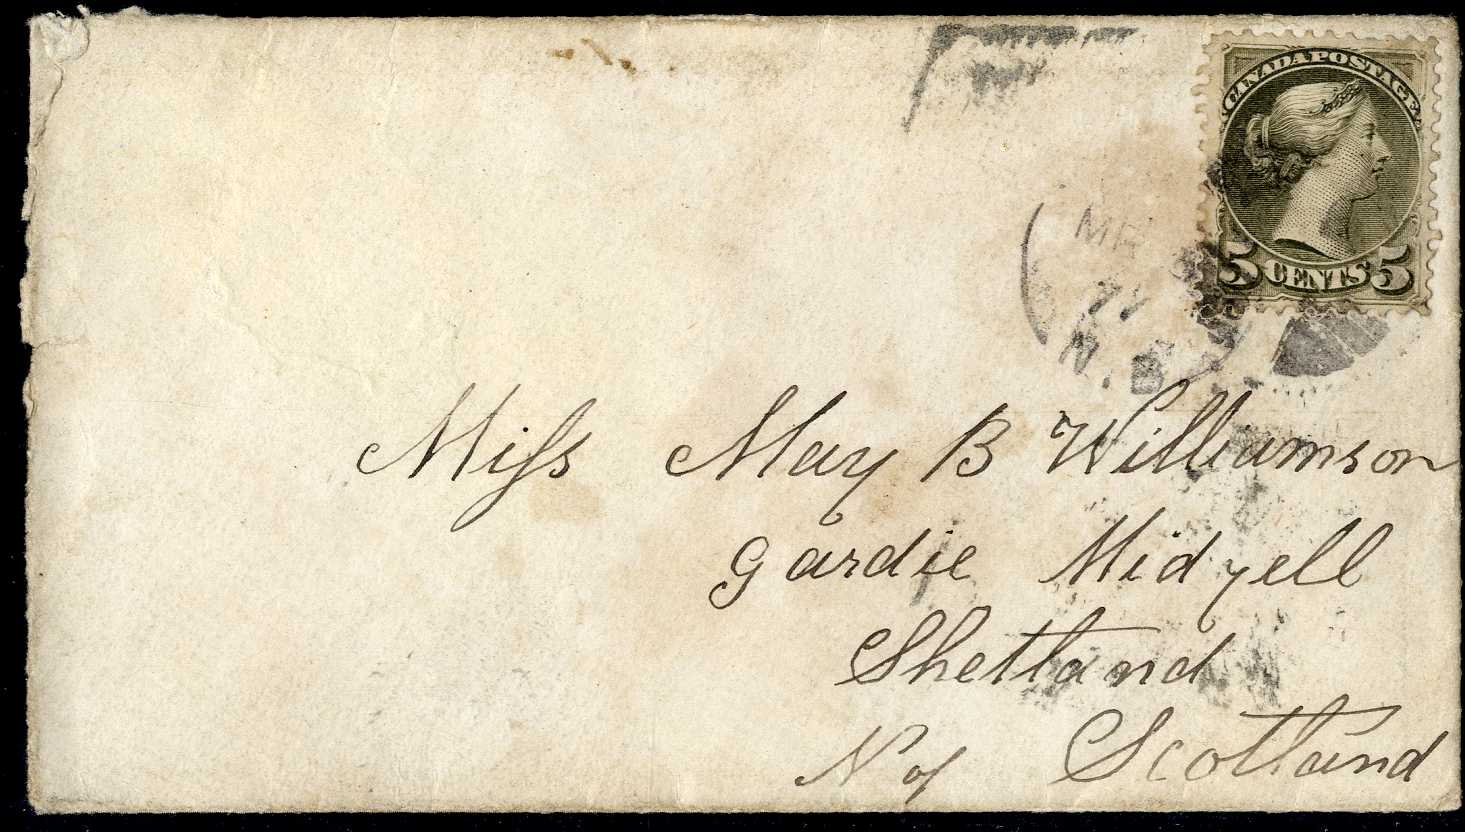 CANADA POSTAGE
5 CENTS 5
MR
N.B
Miss May B Williamson
Gardie Midyell
Shetland
N of Scotland